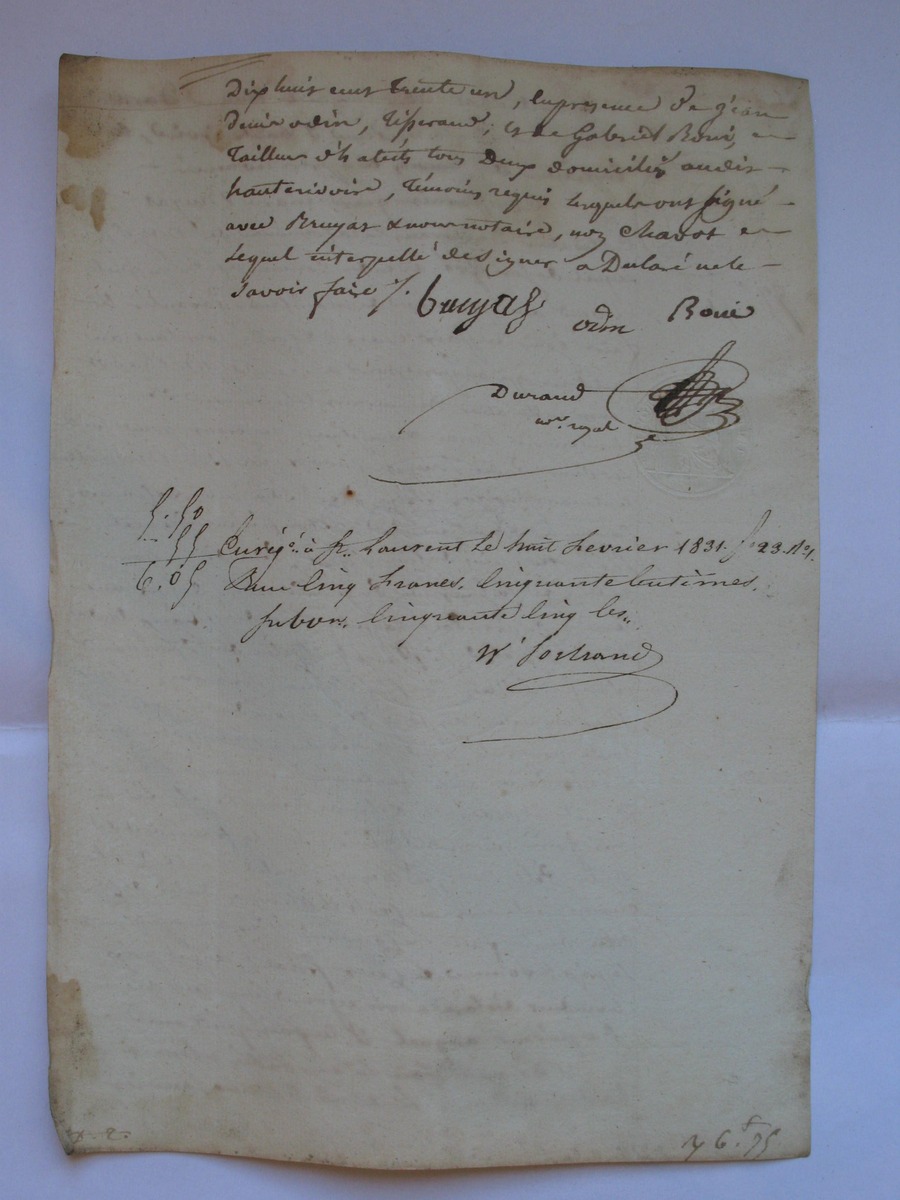 Dix huit cent trente un, en presence de jean
Denis odin, Tisserand, et de Gabriel Roué,
Tailleur d'habits, tous Deux domiciliés audit
hauterivoire, Témoins requis lesquels ont signé
avec Bruyas & nous notaire, non Chavot
lequel interpellé de signer a Declaré ne le
savoir faire /.
bruyas odin Roué
Durand
nre. royal
5. 50
55
6. 05
Enregé. à St. Laurent Le huit fevrier 1831. fo. 23. No.
Reçu Cinq francs. Cinquante Centimes.
Subvon. Cinquante Cinq Ces.